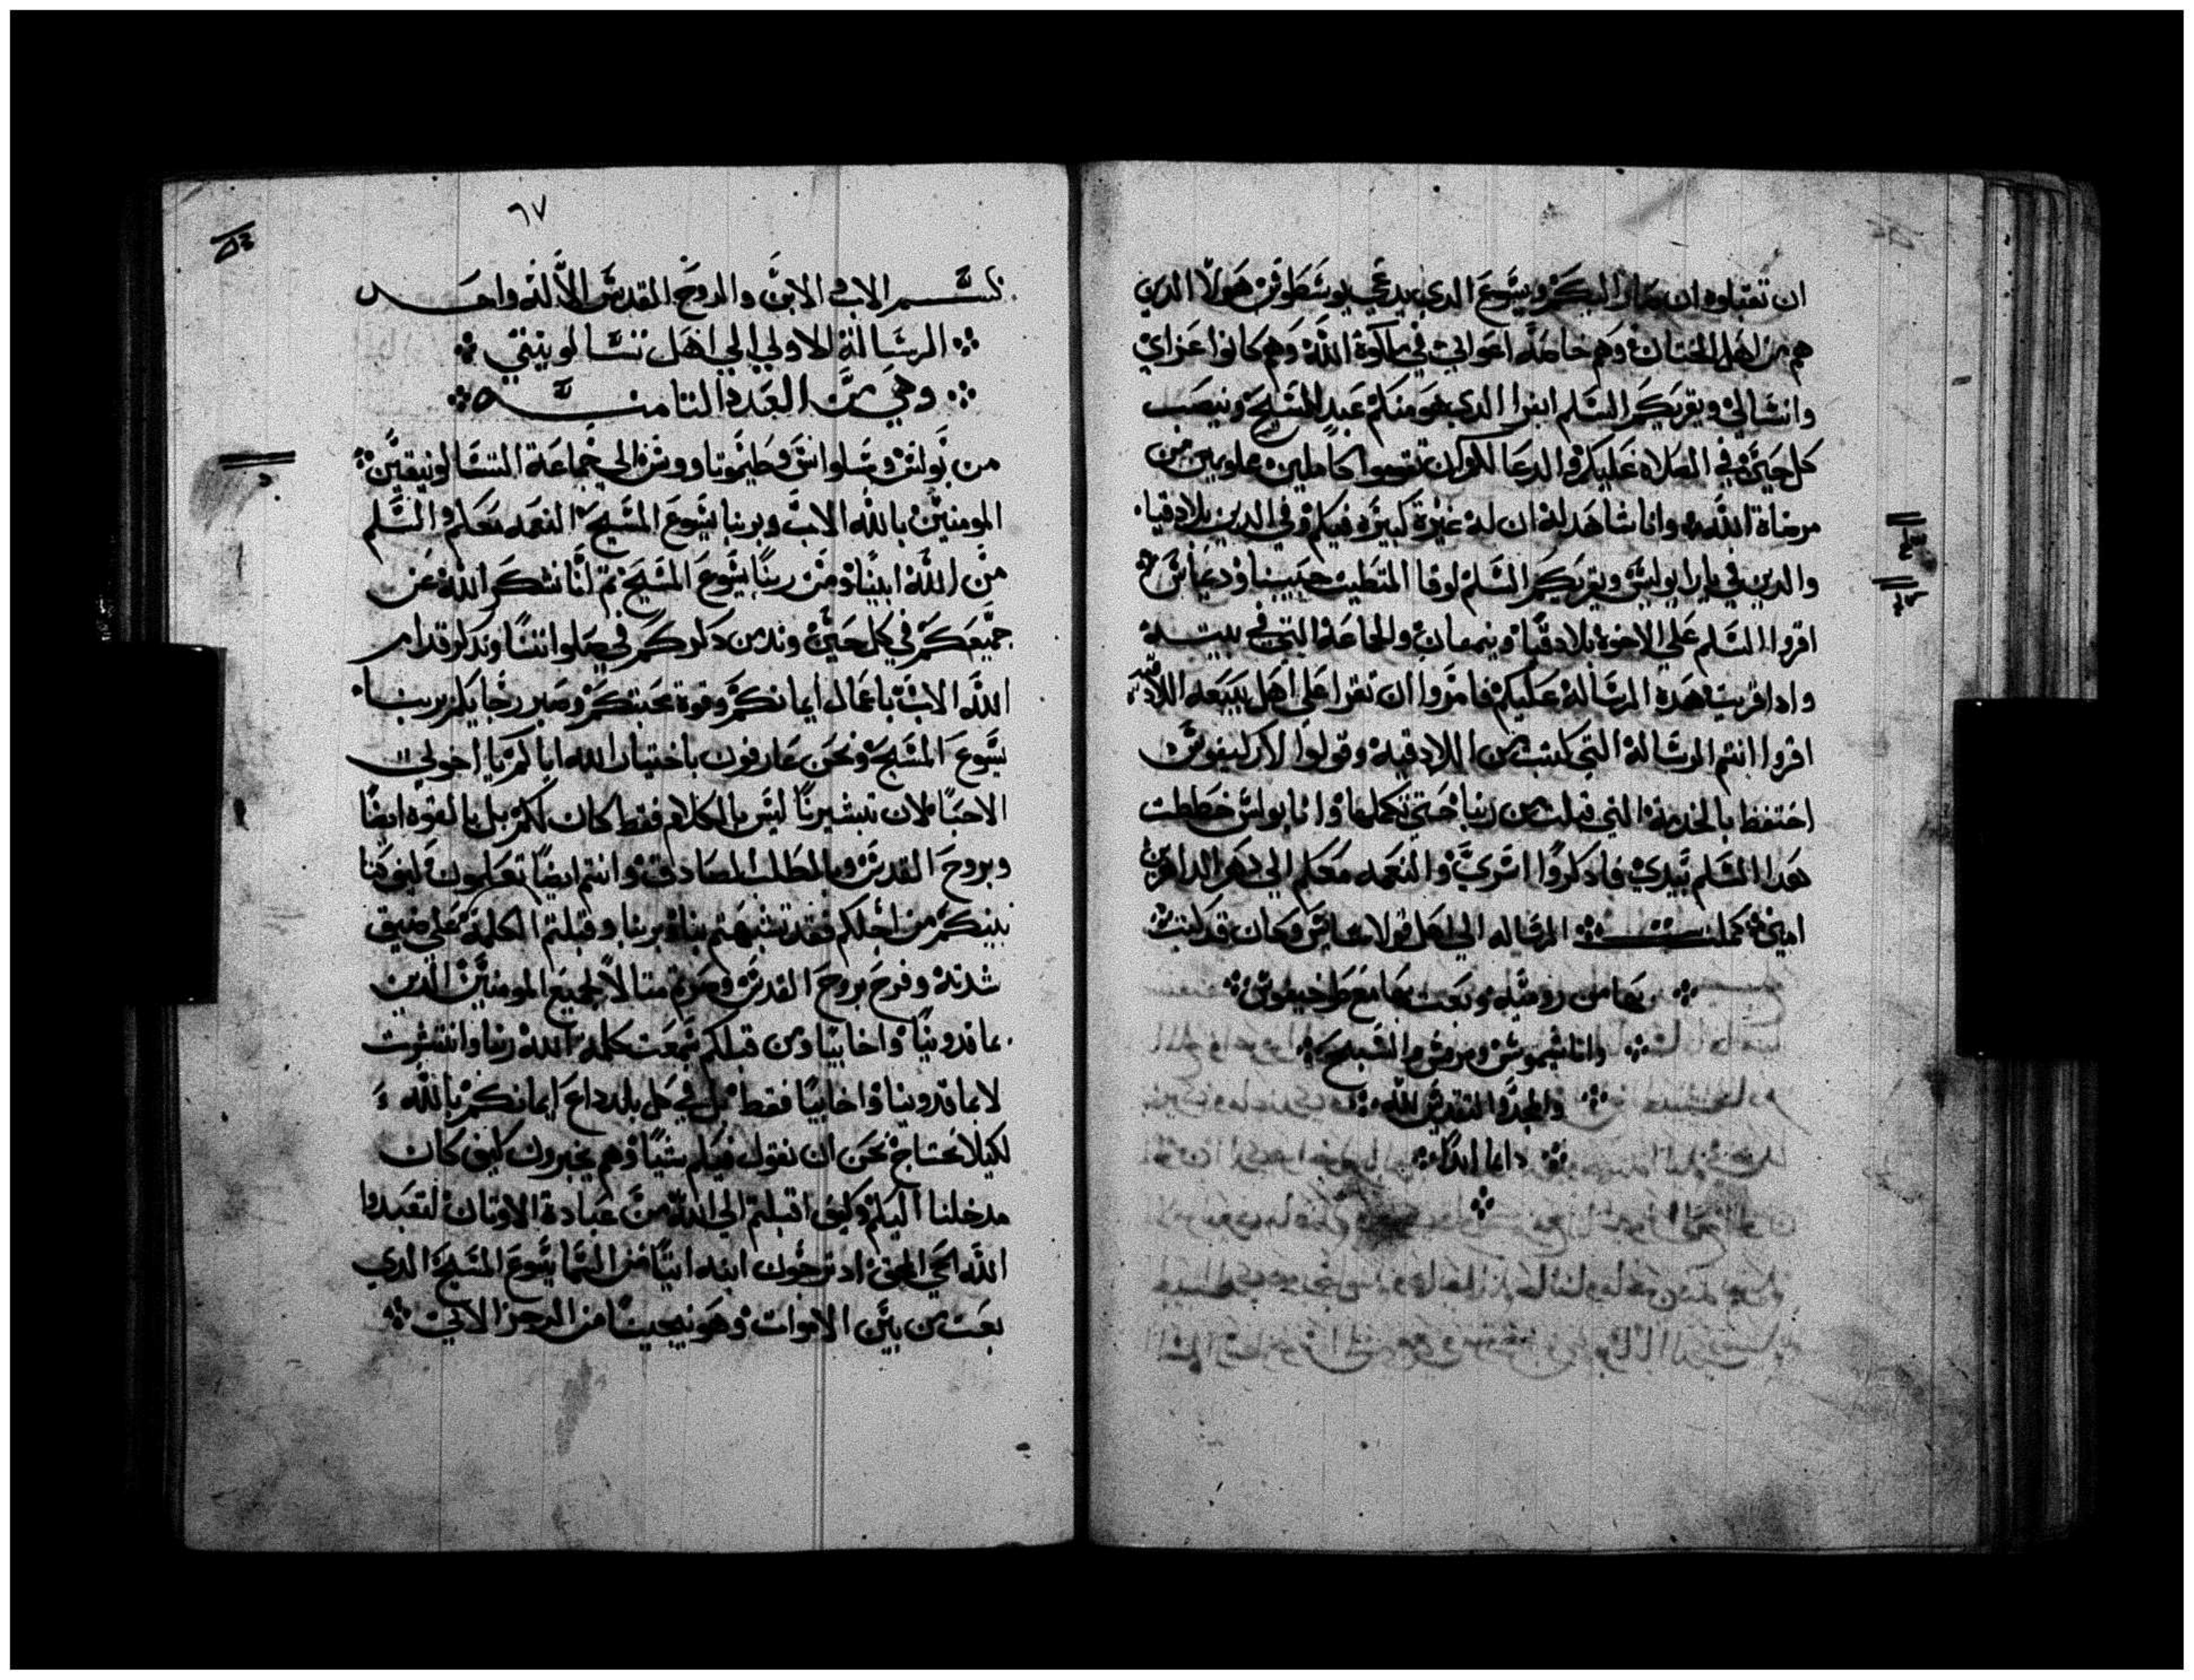 ان تقبلوه ان صار اليكم ويشوع الدي يدعي يوسطوس هولا الدين
هم من اهل الختان وهم خاصه اعواني في ملكوة الله وهم كانوا عزاي
وانشالي ويقريكم السلم ابفرا الدي هو منكم عبد المسيح وينصب
كل حين في الصلاه عليكم والدعا لكم ان تقوموا كاملين مملويين من
مرضاة الله وانا شاهد له ان له غيرة كبيره فيكم وفي الدين بلادقيا
والدين في ايرابوليس ويقريكم السلم لوقا المتطبب حبيبنا وديماس
اقروا السلم علي الاخوة بلادقيا ونمفان والجماعة التي في بيته
وادا قريت هده الرسالة عليكم فامروا ان تقرا علي اهل بيعه اللادقيه
اقروا انتم الرسالة التي كتبت من اللادقيه وقولوا لاركيبوس
احتفظ بالخدمة التي قبلت من ربنا حتي تكملها وانا بولس خططت
هدا السلم بيدي فادكروا اسري والنعمه معكم الي دهر الداهرين
امين كملت الرساله الي اهل قولاسايس وكان قد كتب
بها من روميه وبعت بها مع طوخيقوس
وانا سيموس ومرقس والسبح
والمجد والتقديس لله
دايما ابدا
٦٧
بسم الاب و الابن والروح القدس الاله واحد
الرسالة الاولي الي اهل تسالونيقي
وهي من العدد التامنه
من بولس وسلوانس وطيموتاووس الي جماعة التسالونيقين
المومنين بالله الاب وبربنا يسوع المسيح النعمه معكم والسلم
من الله ابينا ومن ربنا يسوع المسيح تم انا نشكر الله عن
جميعكم في كل حين وندمن دكركم في صلواتنا وندكر قدام
الله الاب باعمال ايمانكم وقوة محبتكم وصبر رجايكم بربنا
يسوع المسيح ونحن عارفون باختيار الله اياكم يا اخوتي
الاحبا لان تبشيرنا ليس بالكلام فقط كان لكم بل بالقوه ايضا
وبروح القدس وبالطلب الصادق وانتم ايضا تعلمون كيف كنا
بينكم من اجلكم فقد تشبهتم بنا وبربنا وقبلتم الكلمة علي ضيق
شدته وفرح بروح القدس وصرتم متالا لجميع المومنين الدين
بماقدونيا واخاييا ومن قبلكم سمعت كلمة الله ربنا وانتشرت
لا بماقدونيا واخاييا فقط بل في كل بلد داع ايمانكم بالله
لكيلا نحتاج نحن ان نقول فيكم شيا وهم يخبرون كيف كان
مدخلنا اليكم وكيف اقبلتم الي الله من عبادة الاوتان لتعبدوا
الله الحي الحق اد ترجون ابنه اتيا من السما يسوع المسيح الدي
بعت من بين الاموات وهو ينجينا من الرجز الاتي